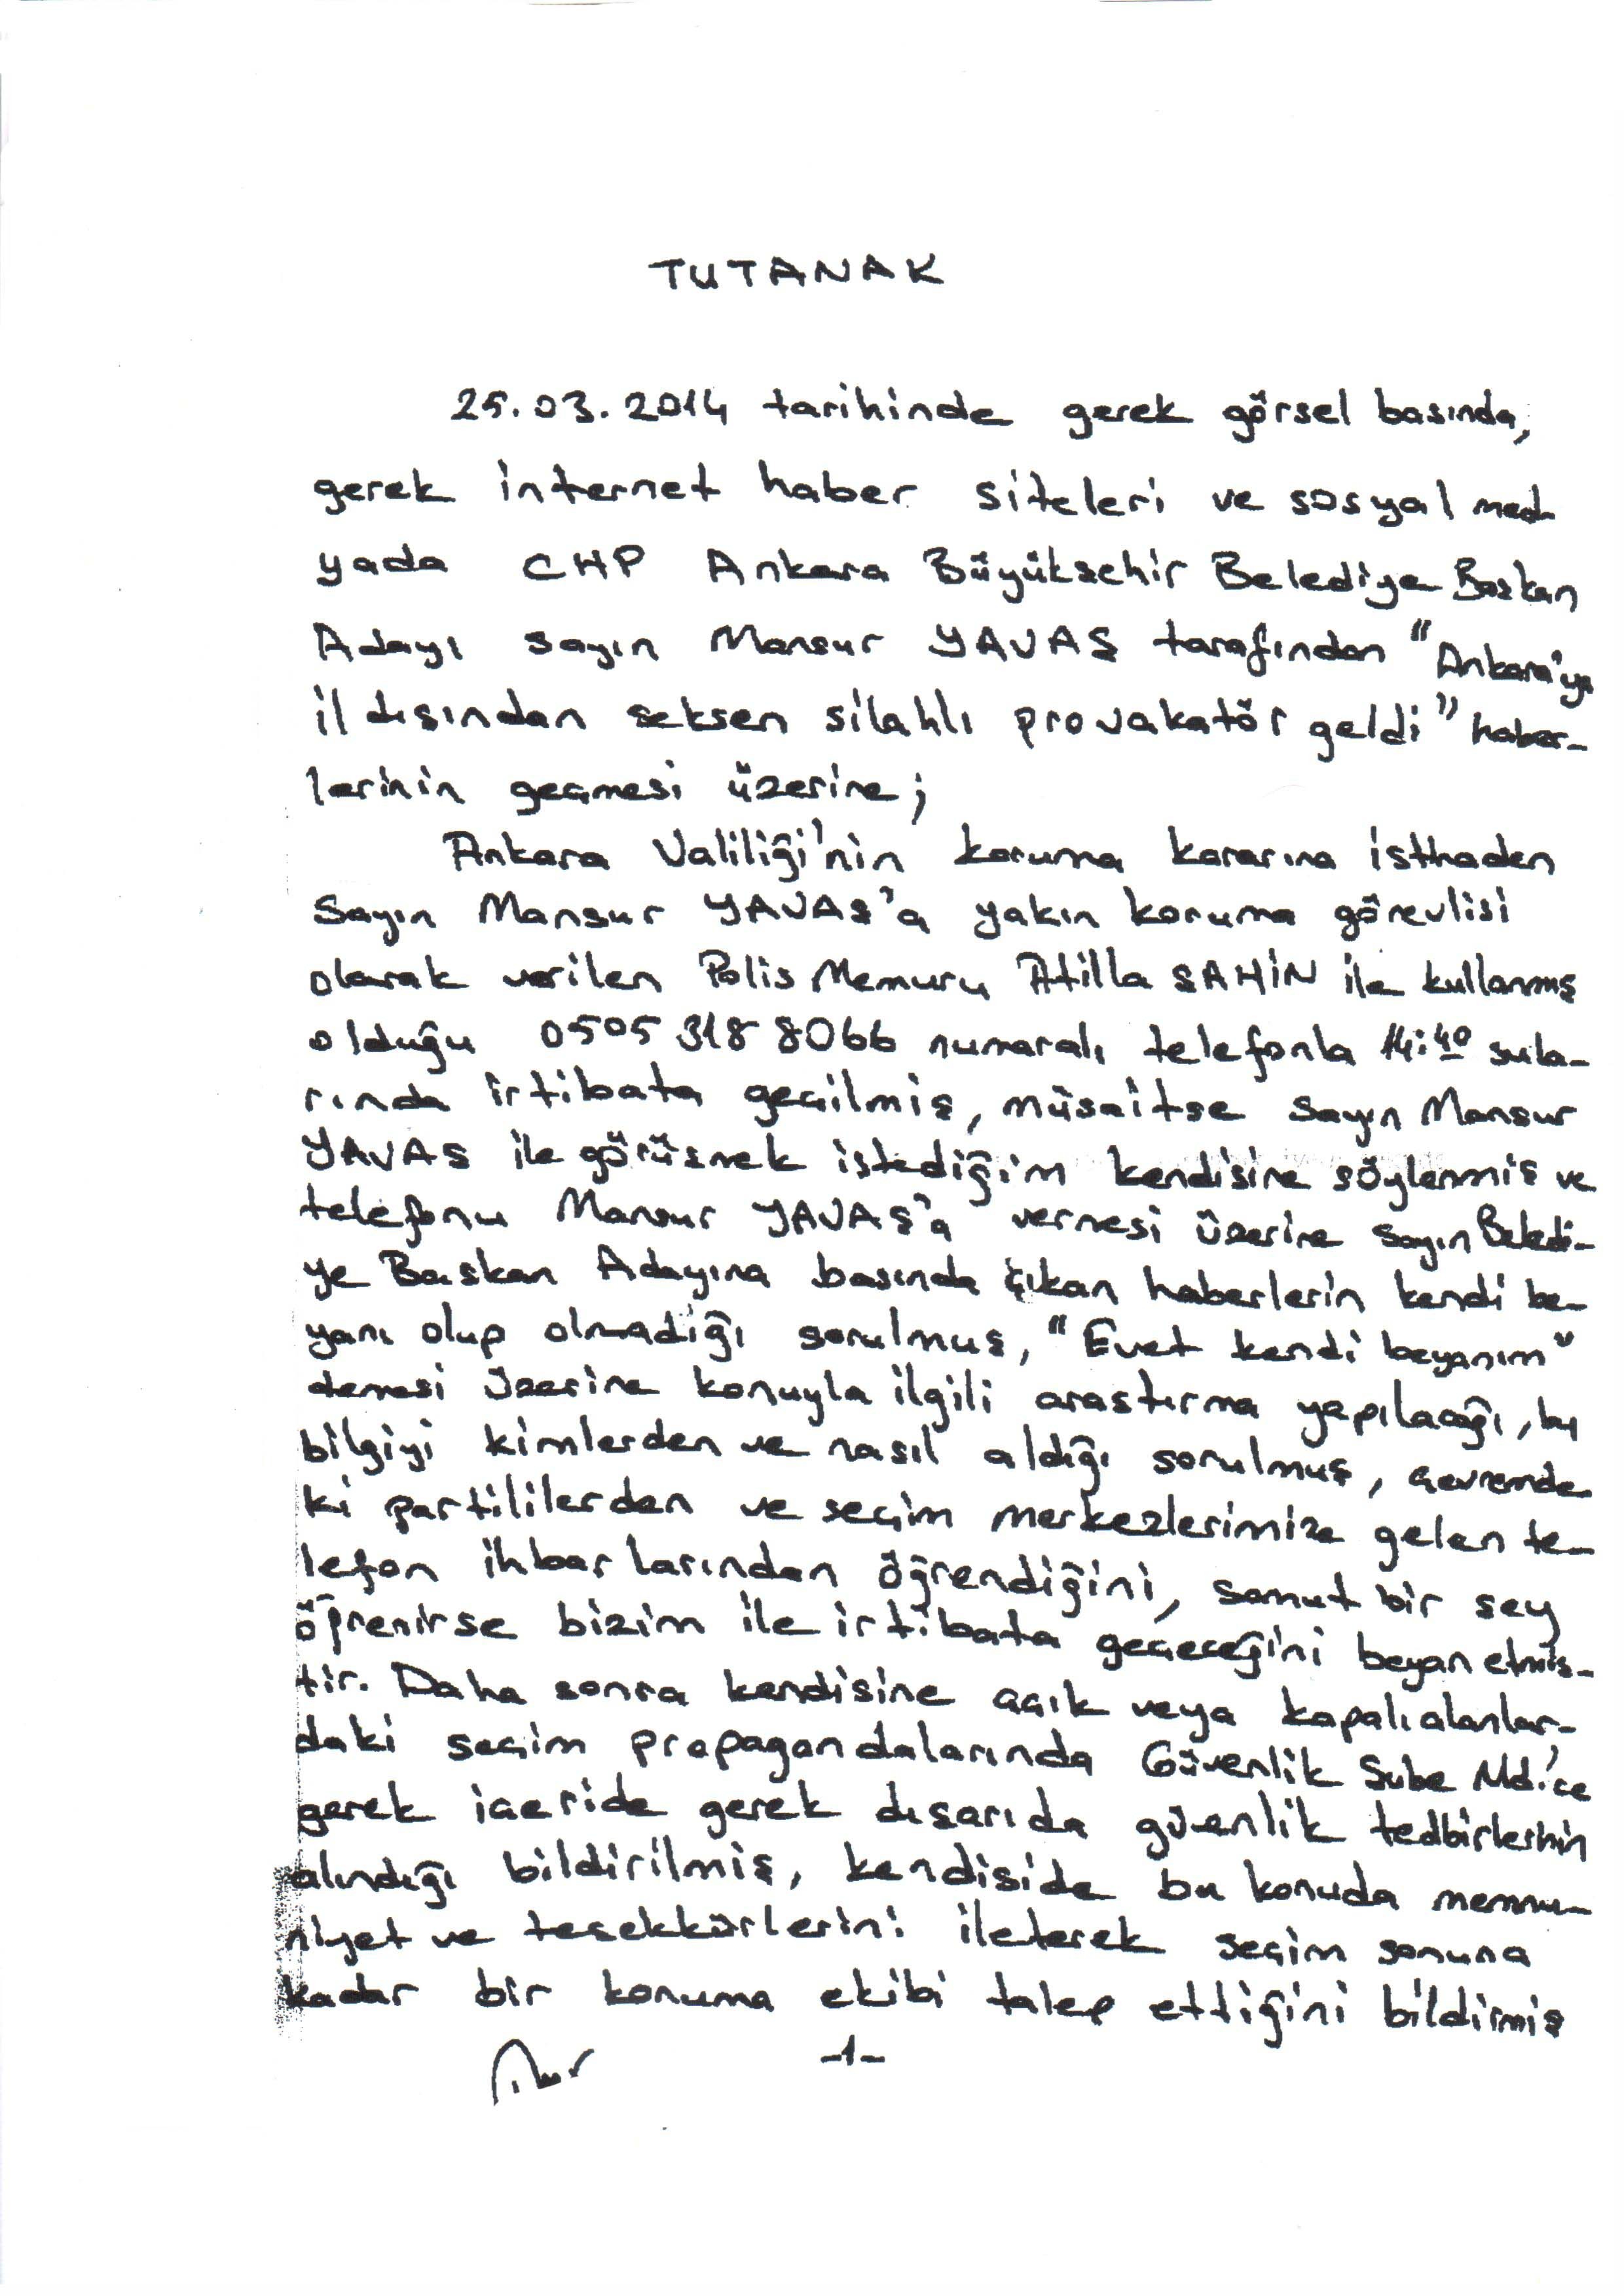 TUTANAK
25.03.2014 tarihinde gerek görsel basında,
gerek internet haber siteleri ve sosyal med
yada CHP Ankara Büyükşehir Belediye Başkan
Adayı sayın Mansur YAVAŞ tarafından "Ankara'ya
il dışından seksen silahlı provakatör geldi" haber-
lerinin geçmesi üzerine;
Ankara Valiliği'nin koruma kararına istinaden
Sayın Mansur YAVAŞ'a yakın koruma görevlisi
olarak verilen Polis Memuru Atilla ŞAHİN ile kullanmış
olduğu 0505 318 8066 numaralı telefonla 14:40 sula-
rında irtibata geçilmiş, müsaitse Sayın Mansur
YAVAŞ ile görüşmek istediğim kendisine söylenmiş ve
telefonu Mansur YAVAŞ'a vermesi üzerine Sayın Beledi-
ye Başkan Adayına basında çıkan haberlerin kendi be-
yanı olup olmadığı sorulmuş, "Evet kendi beyanım"
demesi üzerine konuyla ilgili araştırma yapılacağı, bu
bilgiyi kimlerden ve nasıl aldığı sorulmuş, çevremde
ki partililerden ve seçim merkezlerimize gelen te-
lefon ihbarlarından öğrendiğini, somut bir şey
öğrenirse bizim ile irtibata geçeceğini beyan etmiş-
tir. Daha sonra kendisine açık veya kapalı alanlar-
daki seçim propagandalarında Güvenlik Şube Md.'ce
gerek içeride gerek dışarıda güvenlik tedbirlerinin
alındığı bildirilmiş, kendiside bu konuda memnu-
niyet ve teşekkürlerini ileterek seçim sonuna
kadar bir koruma ekibi talep ettiğini bildirmiş
-1-